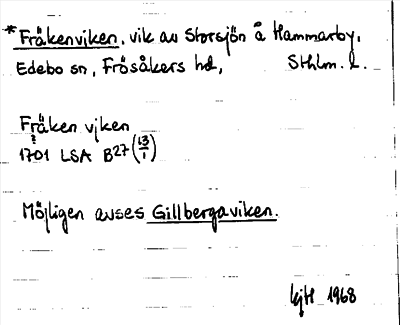 *Fräkenviken, vik av Storsjön å Hammarby,
Edebo sn, Frösåkers hd, Sthlm. l.
Fräken vjken
?
1701 LSA B27 (13/1)
Möjligen avses Gillbergaviken.
1968